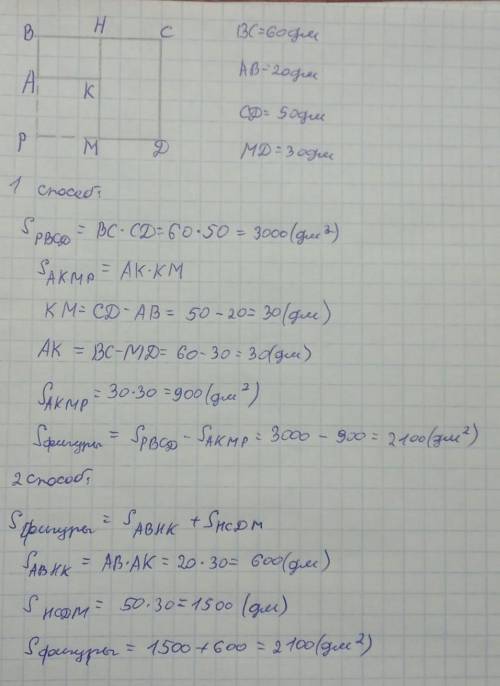 B H C BC=60дм
A K AB=20дм
CD=50дм
P M D MD=30дм
1 способ:
S_PBCD = BC·CD=60·50=3000(дм²)
S_AKMP = AK·KM
KM=CD-AB= 50-20=30(дм)
AK=BC-MD=60-30=30(дм)
S_AKMP=30·30=900(дм²)
S фигуры = S_PBCD - S_AKMP = 3000 - 900 = 2100(дм²)
2 способ:
S фигуры = S_ABHK + S_HCDM
S_ABHK = AB·AK=20·30=600(дм)
S_HCDM = 50·30=1500(дм)
S фигуры = 1500+600=2100(дм²)